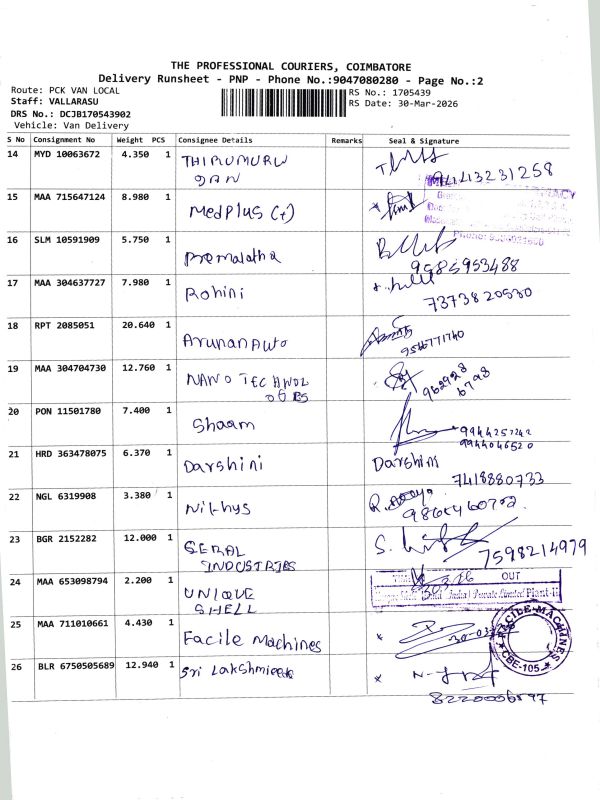 THE PROFESSIONAL COURIERS, COIMBATORE
Delivery Runsheet - PNP - Phone No.:9047080280 - Page No.:2
Route: PCK VAN LOCAL
RS No.: 1705439
Staff: VALLARASU
RS Date: 30-Mar-2026
DRS No.: DCJB170543902
Vehicle: Van Delivery
S No Consignment No Weight PCS Consignee Details Remarks Seal & Signature
14 MYD 10063672 4.350 1 THIRUMURU
GAN
9443231258
15 MAA 715647124 8.980 1 MedPlus (+)
16 SLM 10591909 5.750 1 Premalatha
9585953488
17 MAA 304637727 7.980 1 Rohini
7373820530
18 RPT 2085051 20.640 1 Arunan Auto
9566771740
19 MAA 304704730 12.760 1 NANO TECHNOL
OGIES
962928
6798
20 PON 11501780 7.400 1 Shaam
9944252242
9944046520
21 HRD 363478075 6.370 1 Darshini Darshini
7418880733
22 NGL 6319908 3.380 1 Nikhys
23 BGR 2152282 12.000 1 GERAL
INDUSTRIES
7598214979
24 MAA 653098794 2.200 1 UNIQUE
SHELL
OUT
India) Private Limited Plant-II
25 MAA 711010661 4.430 1 Facile Machines
30-03
FACILE MACHINES
CBE-105
26 BLR 6750505689 12.940 1 Sri Lakshmi
8220006897